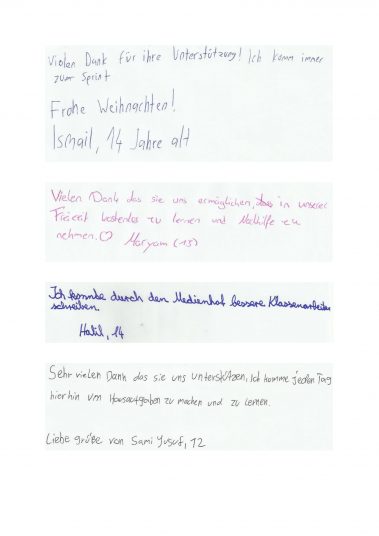 Vielen Dank für ihre Unterstützung! Ich komm immer
zum Sprint
Frohe Weihnachten!
Ismail, 14 Jahre alt
Vielen Dank das sie uns ermöglichen, in unserer
Freizeit kostenlos zu lernen und Nachhilfe zu
nehmen.♡ Maryam (15)
Ich konnte durch den Medienhof bessere Klassenarbeiten
schreiben.
Halil, 14
Sehr vielen Dank das sie uns unterstützen, Ich komme jeden Tag
hierhin um Hausaufgaben zu machen und zu lernen.
Liebe grüße von Sami Yusuf, 12